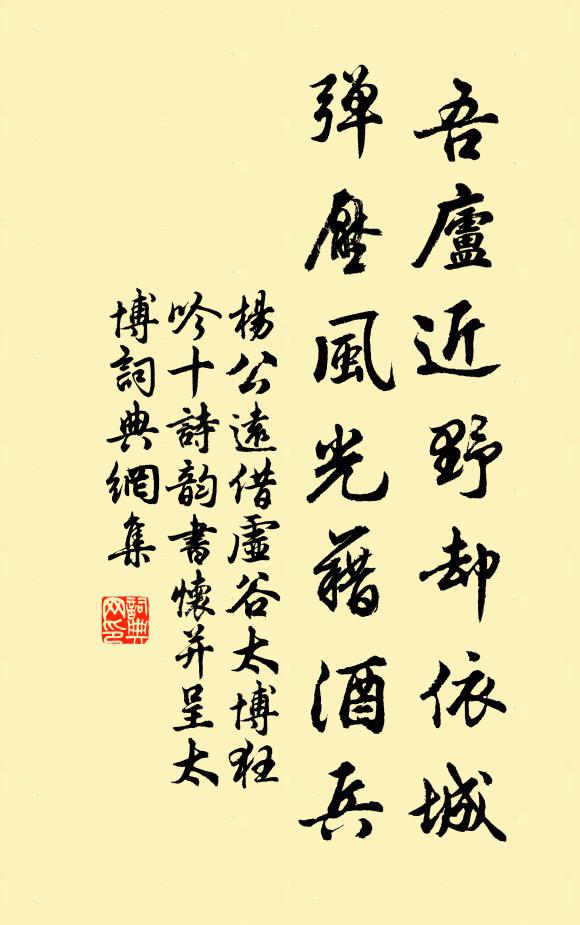 吾廬近野却依城
弾壓風光藉酒兵
楊公遠借虛谷太博狂
吟十詩韵書懷并呈太
博詞典網集
詞典网